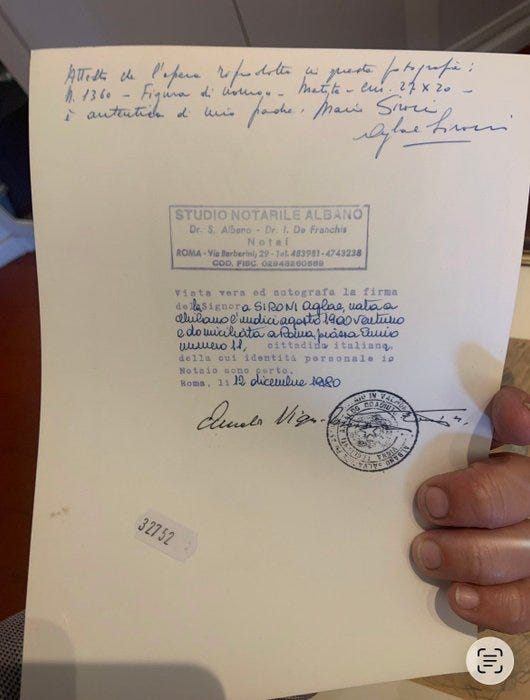 Attesto che l'opera riprodotta in questa fotografia:
N. 1360 - Figura di uomo - Matita - cm. 27 x 20 -
è autentica di mio padre, Mario Sironi
Aglae Sironi
STUDIO NOTARILE ALBANO
Dr. S. Albano - Dr. I. De Franchis
Notai
ROMA - Via Barberini, 29 - Tel. 483981 - 4743238
COD. FISC. 02948260589
Vista vera ed autografa la firma
della Signora SIRONI Aglae, nata a
Milano l'undici agosto 1920 ventuno
e domiciliata a Roma, piazza Ennio
numero 11, cittadina italiana,
della cui identità personale io
Notaio sono certo.
Roma, li 12 dicembre 1980
32752